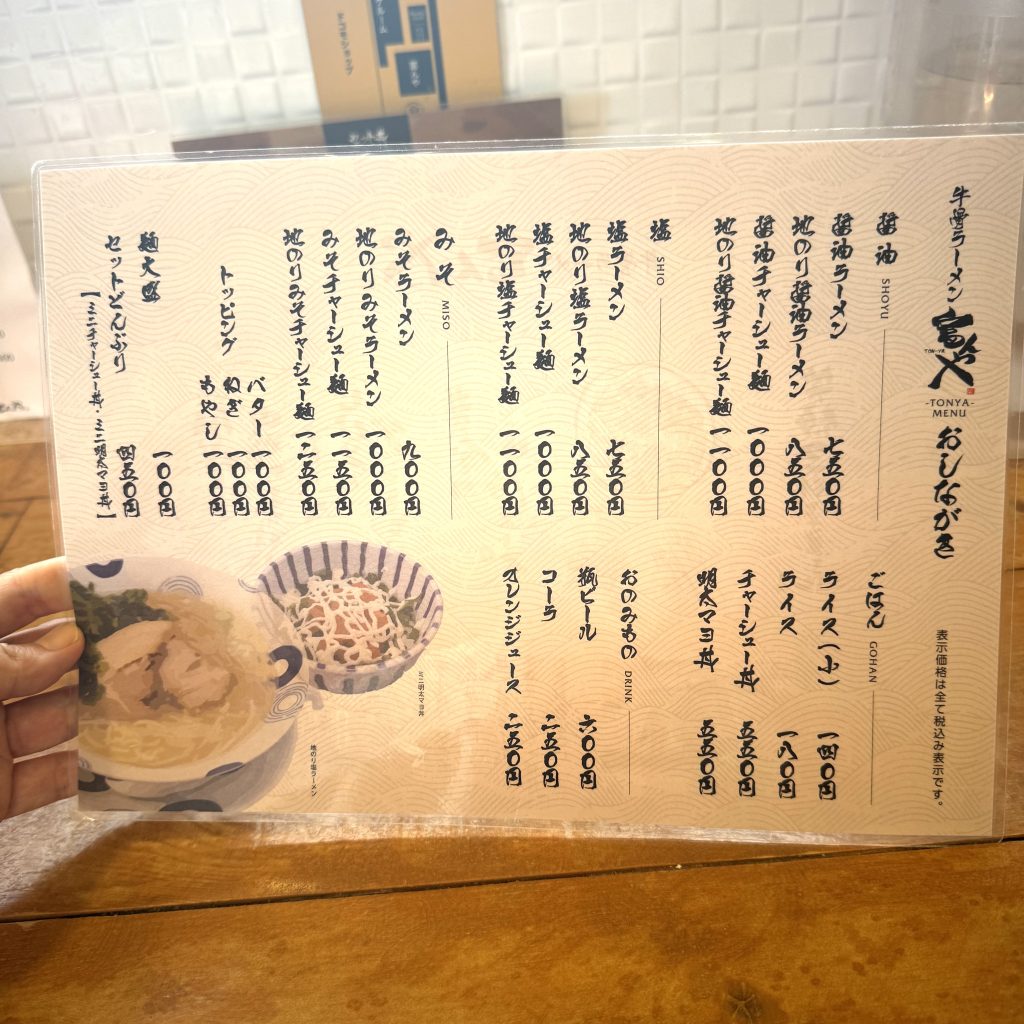 牛骨ラーメン
富や
TON-YA
-TONYA-
MENU
おしながき
表示価格は全て税込み表示です。
醤油 SHOYU
醤油ラーメン 七五〇円
地のり醤油ラーメン 八五〇円
醤油チャーシュー麺 一〇〇〇円
地のり醤油チャーシュー麺 一一〇〇円
塩 SHIO
塩ラーメン 七五〇円
地のり塩ラーメン 八五〇円
塩チャーシュー麺 一〇〇〇円
地のり塩チャーシュー麺 一一〇〇円
みそ MISO
みそラーメン 九〇〇円
地のりみそラーメン 一〇〇〇円
みそチャーシュー麺 一一五〇円
地のりみそチャーシュー麺 一二五〇円
トッピング
バター 一〇〇円
ねぎ 一〇〇円
もやし 一〇〇円
麺大盛 一〇〇円
セットどんぶり 四五〇円
【ミニチャーシュー丼・ミニ明太マヨ丼】
ごはん GOHAN
ライス(小) 一四〇円
ライス 一八〇円
チャーシュー丼 五五〇円
明太マヨ丼 五五〇円
おのみもの DRINK
瓶ビール 六〇〇円
コーラ 二五〇円
オレンジジュース 二五〇円
ミニ明太マヨ丼
地のり塩ラーメン